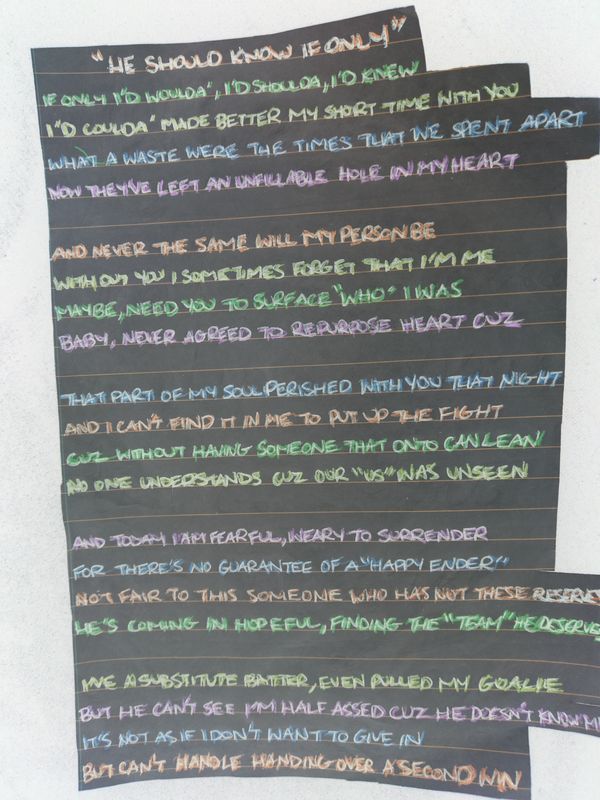 "HE SHOULD KNOW IF ONLY"
IF ONLY I"D WOULDA", I'D SHOULDA, I'D KNEW
I"D COULDA" MADE BETTER MY SHORT TIME WITH YOU
WHAT A WASTE WERE THE TIMES THAT WE SPENT APART
NOW THEY'VE LEFT AN UNFILLABLE HOLE IN MY HEART
AND NEVER THE SAME WILL MY PERSON BE
WITHOUT YOU I SOMETIMES FORGET THAT I'M ME
MAYBE, NEED YOU TO SURFACE "WHO" I WAS
BABY, NEVER AGREED TO REPURPOSE HEART CUZ
THAT PART OF MY SOUL PERISHED WITH YOU THAT NIGHT
AND I CAN'T FIND IT IN ME TO PUT UP THE FIGHT
CUZ WITHOUT HAVING SOMEONE THAT ONTO CAN LEAN
NO ONE UNDERSTANDS CUZ OUR "US" WAS UNSEEN
AND TODAY I AM FEARFUL, WEARY TO SURRENDER
FOR THERE'S NO GUARANTEE OF A "HAPPY ENDER"
NOT FAIR TO THIS SOMEONE WHO HAS NOT THESE RESERVES
HE'S COMING IN HOPEFUL, FINDING THE "TEAM" HE DESERVE
I'VE A SUBSTITUTE BATTER, EVEN PULLED MY GOALIE
BUT HE CAN'T SEE I'M HALF ASSED CUZ HE DOESN'T KNOW
IT'S NOT AS IF I DON'T WANT TO GIVE IN
BUT CAN'T HANDLE HANDING OVER A SECOND WIN